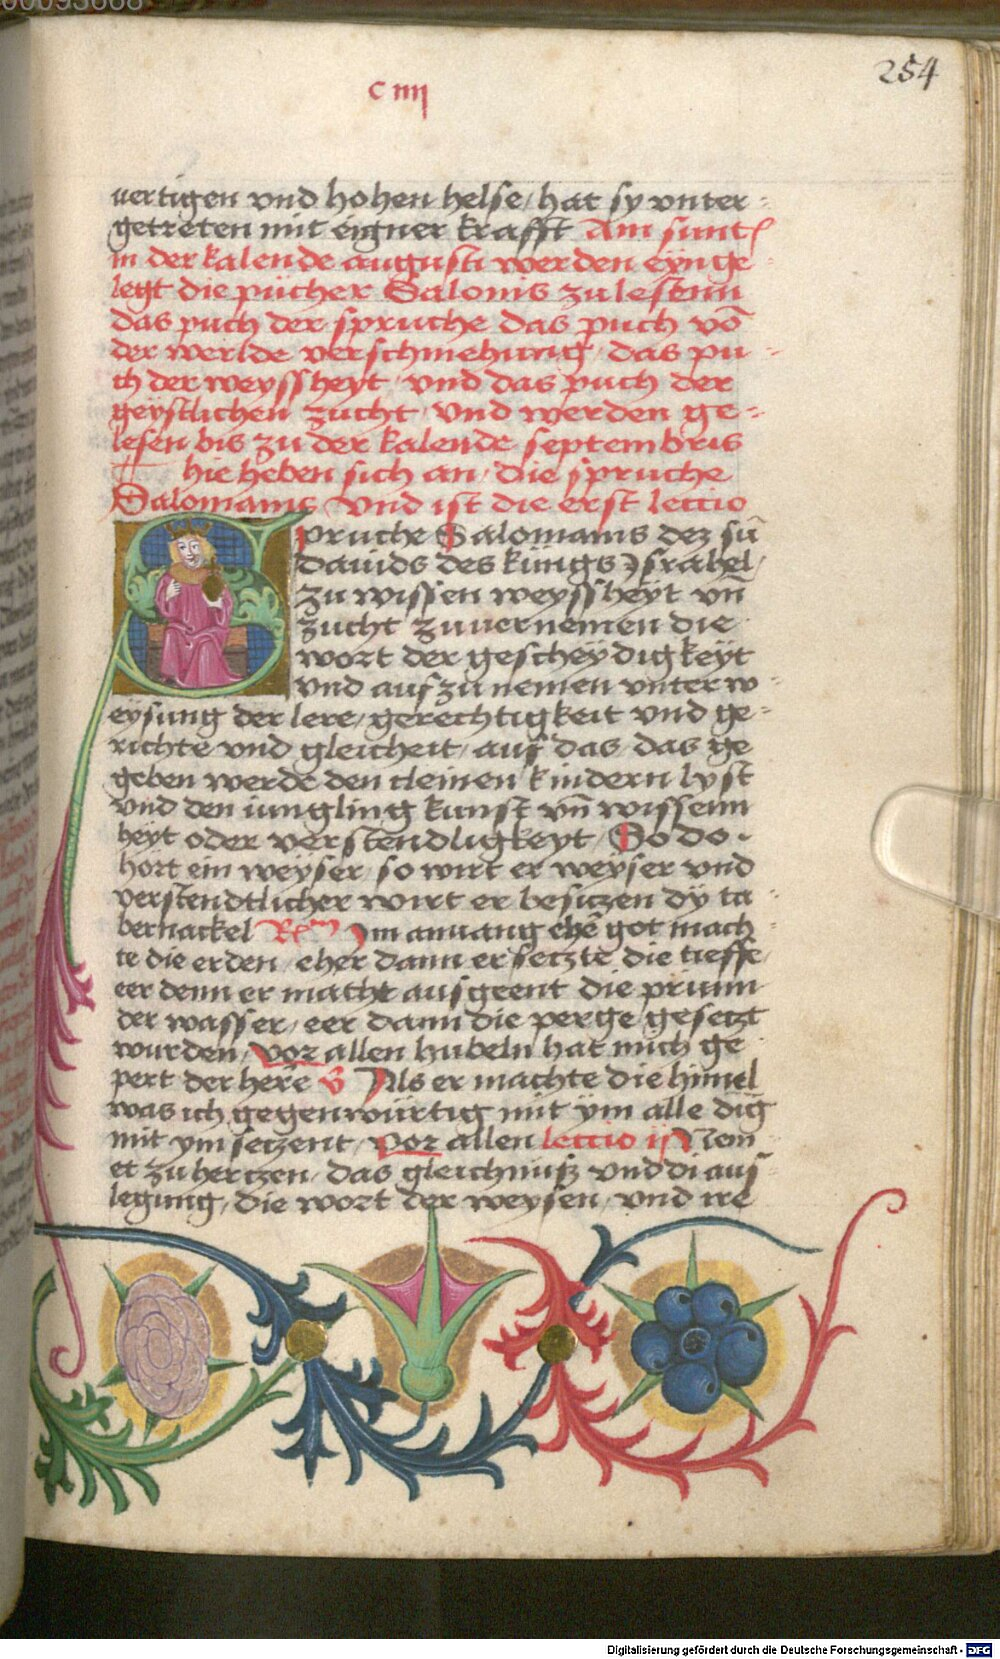 00093668
254
c iiij
uertigen vnd hohen helse / hat sy vnter-
getreten mit eigner krafft Am sunt
in der kalende augusti werden eynge
legt die pücher Salonis zu lesenn
das puch der spruche das puch vō
der werlde verschmehung / das pu-
ch der weyssheyt / vnd das puch der
geystlichen zucht / vnd werden ge-
lesen bis zu der kalende septembris
hie heben sich an / die spruche
Salomanis / vnd ist die erst lectio
Spruche Salomanis dez sū
dauids des küngs Jsrahel /
zu wissen weyssheyt vn̄
zucht zuuernemen die
wort der gescheydigkeyt
vnd auf zu nemen vnterw-
eysung der lere / gerechtigkeit vnd ge-
richte vnd gleicheit / auf das / das ge
geben werde den cleinen kindern lyst
vnd den iungling kunst vn̄ wissenn
heyt oder verstendligkeyt / So do-
hört ein weyser / so wirt er weyser vnd
verstendtlicher wirt er besiczen dy ta-
bernackel Rm Jm anuang ehē got mach-
te die erden / eher dann er seczte die tieffe /
eer denn er macht ausgeent die prunn
der wasser / eer dann die perge geseczt
wurden / vor allen hubeln hat mich ge
pert der here V Als er machte die himel
was ich gegenwürtig mit ym alle dig
mit ym seczent / vor allen lectio ij Nem-
et zu herczen / das gleichnuß vnd di aus-
legung / die wort der weysen / vnd ire
Digitalisierung gefördert durch die Deutsche Forschungsgemeinschaft - DFG